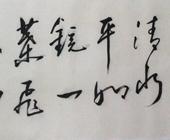 清水
平如
鏡一
葉飛